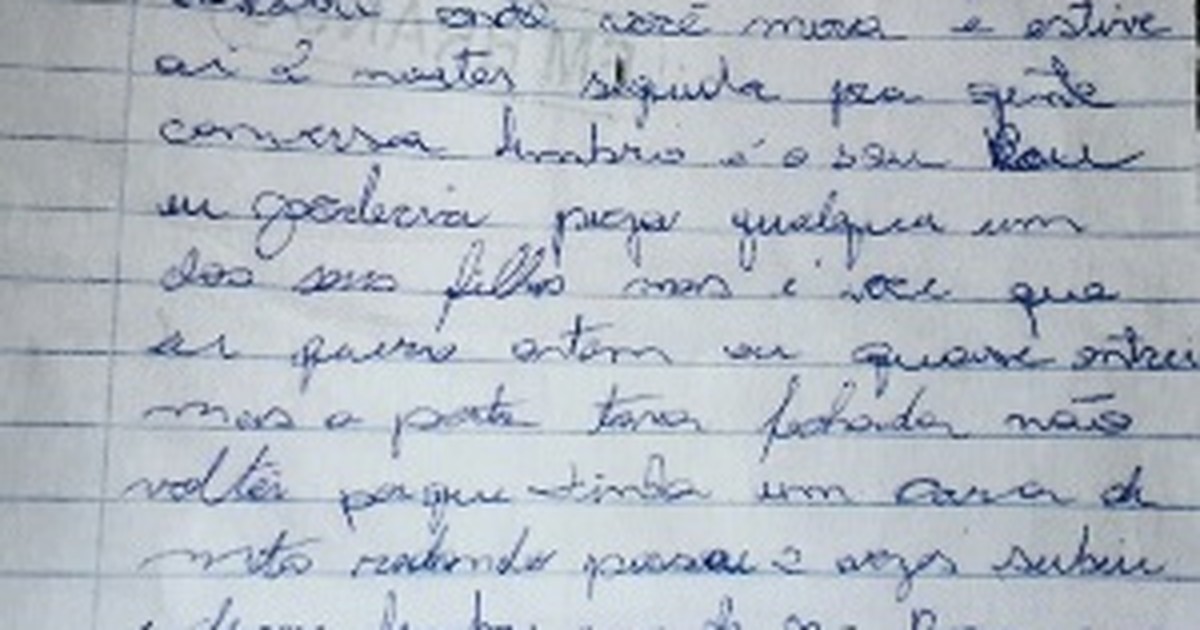 onde você mora e estive
ai 2 noites siguida pra gente
conversa lembro é o seu
eu poderia pega qualquer um
dos seus filhos mas é voce que
eu quero ontem eu quase entrei
mas a porta tava fechada não
voltei porque tinha um cara de
moto rodando passou 2 vezes subiu